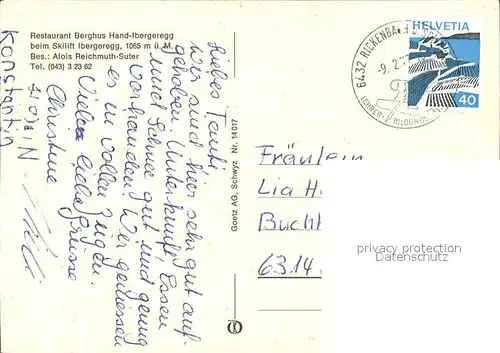 Restaurant Berghus Hand-Ibergeregg
beim Skilift Ibergeregg, 1065 m ü. M.
Bes.: Alois Reichmuth-Suter
Tel. (043) 3 23 62
Liebes Tanti
Wir sind hier sehr gut auf-
gehoben. Unterkunft, Essen
und Schnee gut und genug
vorhanden. Wir geniessen
es in vollen Zügen.
Viele liebe Grüsse
Christine
Konstantin
Goetz AG, Schwyz. Nr. 14017
6432 RICKENBACH B. SCHWYZ
-9. 2.
LEHRER-
HELVETIA
40
Fräulein
Lia H
Buchh
6314
privacy protection
Datenschutz